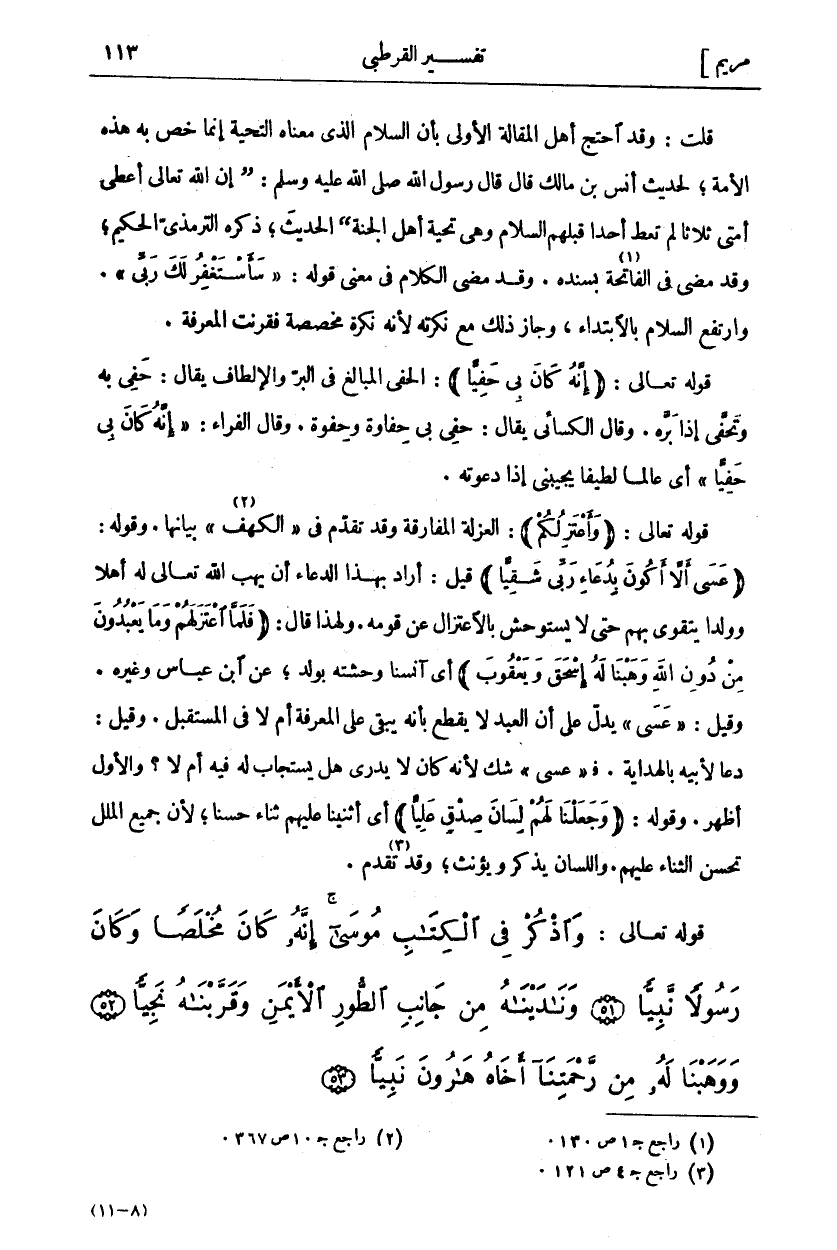 مريم] تفســـير القرطبى ١١٣
قلت : وقد ٱحتج أهل المقالة الأولى بأن السلام الذى معناه التحية إنما خص به هذه
الأمة ؛ لحديث أنس بن مالك قال قال رسول الله صلى الله عليه وسلم : ” إن الله تعالى أعطى
أمتى ثلاثا لم تعط أحدا قبلهم السلام وهى تحية أهل الجنة “ الحديثَ ؛ ذكره الترمذىّ الحكيم ؛
وقد مضى فى الفاتحة (١) بسنده . وقــد مضى الكلام فى معنى قوله : « سَأَسْتَغْفِرُ لَكَ رَبِّى » .
وارتفع السلام بالٱبتداء ، وجاز ذلك مع نكرته لأنه نكرة مخصصة فقرنت المعرفة .
قوله تعــالى : ﴿ إِنَّهُ كَانَ بِى حَفِيًّا ﴾ : الحفى المبالغ فى البرّ والإلطاف يقال : حَفِى به
وتَحَفَّى إذا بَرَّه . وقال الكسائى يقال : حفى بى حِفاوة وحِفوة . وقال الفراء : « إِنَّهُ كَانَ بِى
حَفِيًّا » أى عالمــا لطيفا يجيبنى إذا دعوته .
قوله تعالى : ﴿ وَأَعْتَزِلُكُمْ ﴾ : العزلة المفارقة وقد تقدّم فى « الكهف » (٢) بيانها . وقوله :
﴿ عَسَى أَلَّا أَكُونَ بِدُعَاءِ رَبِّى شَــقِيًّا ﴾ قيل : أراد بهــذا الدعاء أن يهب الله تعــالى له أهلا
وولدا يتقوى بهم حتى لا يستوحش بالٱعتزال عن قومه . ولهذا قال : ﴿ فَلَمَّا ٱعْتَزَلَهُمْ وَمَا يَعْبُدُونَ
مِنْ دُونِ اللهِ وَهَبْنَا لَهُ إِسْحَقَ وَيَعْقُوبَ ﴾ أى آنسنا وحشته بولد ؛ عن ٱبن عبــاس وغيره .
وقيل : « عَسَى » يدلّ على أن العبد لا يقطع بأنه يبقى على المعرفة أم لا فى المستقبل . وقيل :
دعا لأبيه بالهداية . فـ « عسى » شك لأنه كان لا يدرى هل يستجاب له فيه أم لا ؟ والأول
أظهر . وقوله : ﴿ وَجَعَلْنَا لَهُمْ لِسَانَ صِدْقٍ عَلِيًّا ﴾ أى أثنينا عليهم ثناء حسنا ؛ لأن جميع الملل
تحسن الثناء عليهم . واللسان يذكر ويؤنث ؛ وقد تقدم (٣) .
قوله تعــالى : وَٱذْكُرْ فِى ٱلْكِتَٰبِ مُوسَىٰٓ ۚ إِنَّهُۥ كَانَ مُخْلَصًا وَكَانَ
رَسُولًا نَّبِيًّا ﴿٥١﴾ وَنَٰدَيْنَٰهُ مِن جَانِبِ ٱلطُّورِ ٱلْأَيْمَنِ وَقَرَّبْنَٰهُ نَجِيًّا ﴿٥٢﴾
وَوَهَبْنَا لَهُۥ مِن رَّحْمَتِنَآ أَخَاهُ هَٰرُونَ نَبِيًّا ﴿٥٣﴾
(١) راجع جـ ١ ص ١٣٠ . (٢) راجع جـ ١٠ ص ٣٦٧ .
(٣) راجع جـ ٤ ص ١٢١ .
(١١-٨)